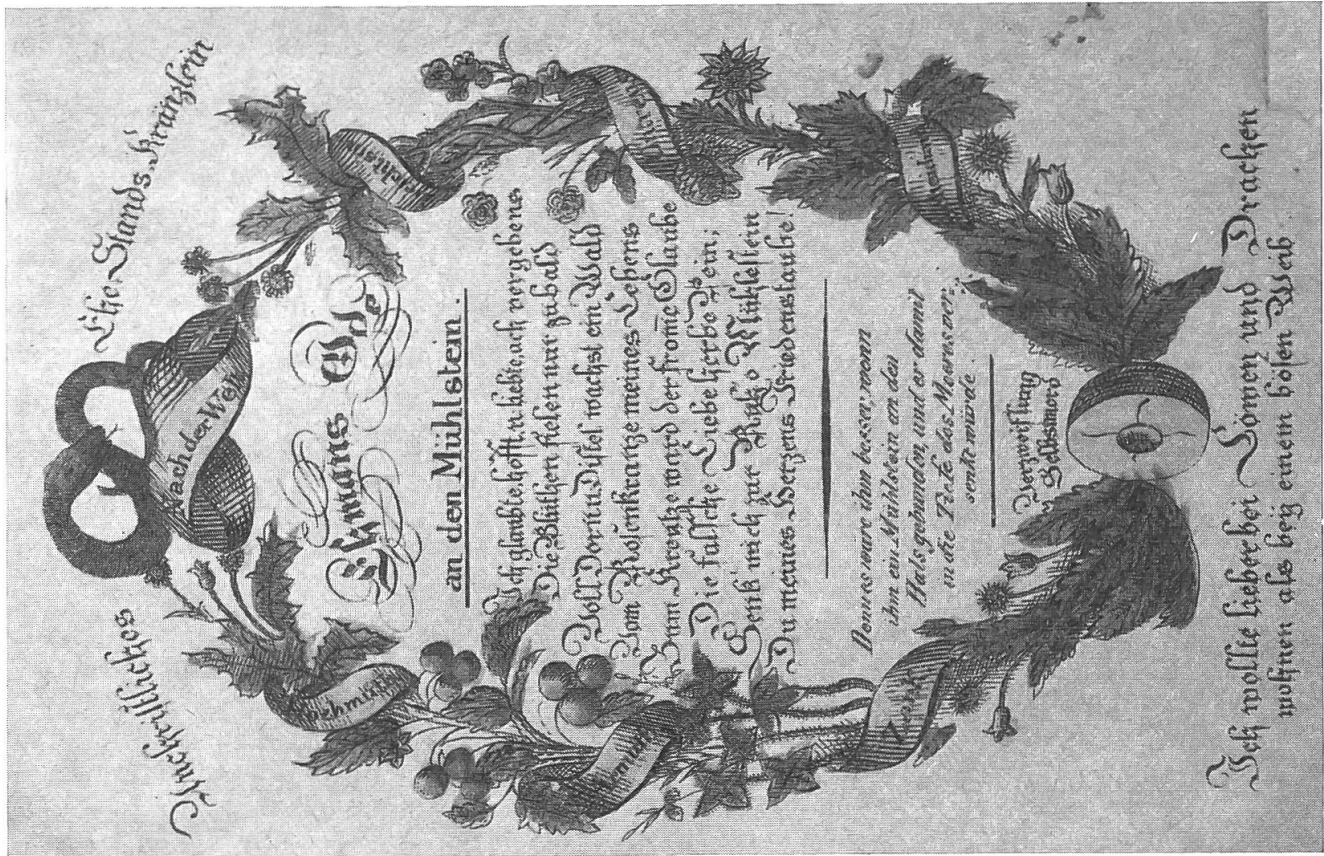 Ehe Stands Kränzlein
Nach der Welt
Ehmans Ode
an den Mühlstein.
Ich glaubte, hofft, u liebte, ach vergebens
Die Blüthen fielen nur zu bald
Voll Dorn u Distel wachst ein Wald
Vom Rosenkrantze meines Lebens
Zum Kreutze ward der from̄e Glaube
Die falsche Liebe herbe Pein;
Senk' mich zur Ruh, o Mühlestein
Du meines Herzens Friedenstaube!
Denn es ware ihm besser, wenn
ihm ein Mühlstein an den
Hals gebunden, und er damit
in die Tiefe des Meeres ver-
senkt würde.
Verzweiflung
Selbsmord
Ich wollte lieber bei Löwen und Drachen
wohnen als beÿ einem bösen Weib